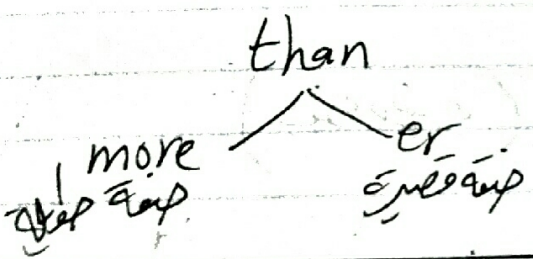 than
more er
صفة طويلة صفة قصيرة